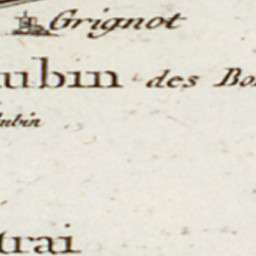 Grignot
ubin des Bo
ubin
trai